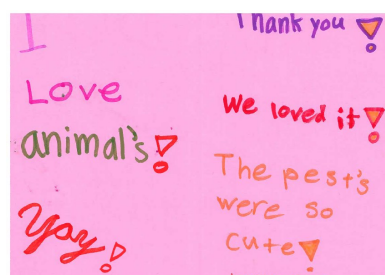 I
Love
animal's!
Yay!
Thank you!
We loved it!
The pest's
were so
cute!